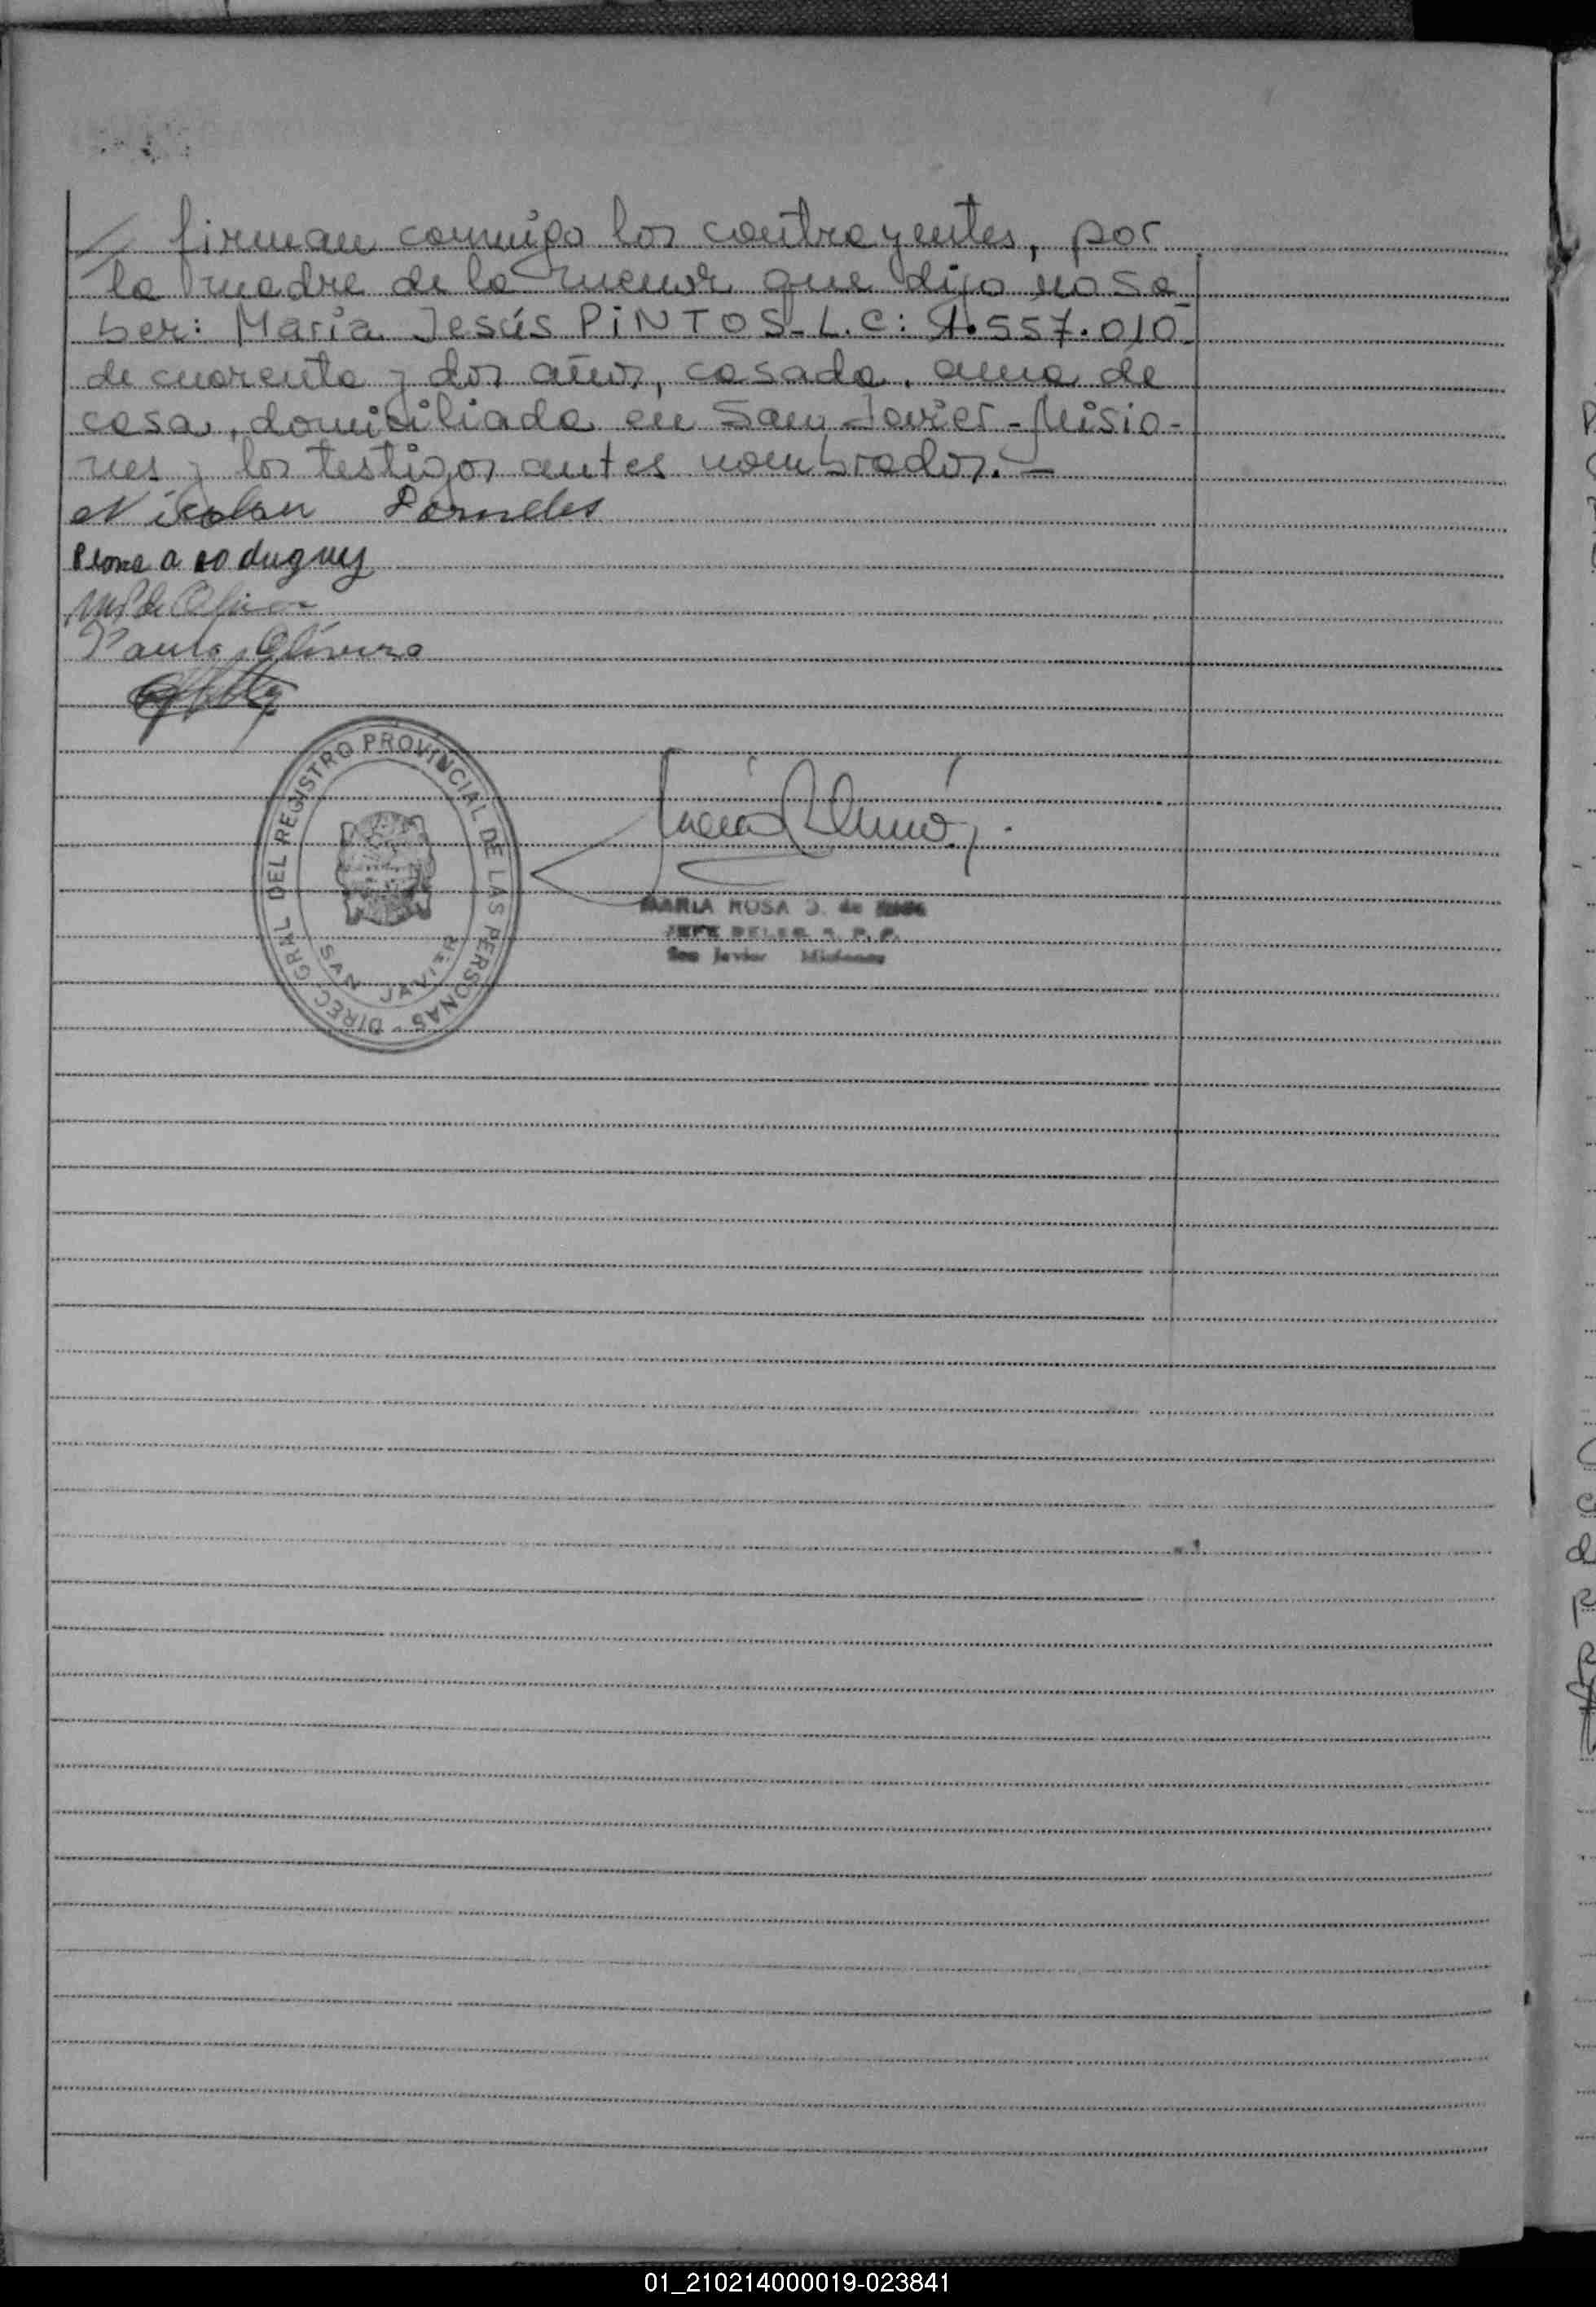 firman conmigo los contrayentes, por
la madre de la menor que dijo no sa-
ber: María Jesús PINTOS - L.C: 1.557.010-
de cuarenta y dos años, casada, ama de
casa, domiciliada en San Javier - Misio-
nes y los testigos antes nombrados. —
Nicolau Dornelles
a roduguez
Olivera
DIREC. GRAL. DEL REGISTRO PROVINCIAL DE LAS PERSONAS -
SAN JAVIER
MARIA ROSA D. de
JEFE DELEG. R. P. P.
San Javier Misiones
01_210214000019-023841